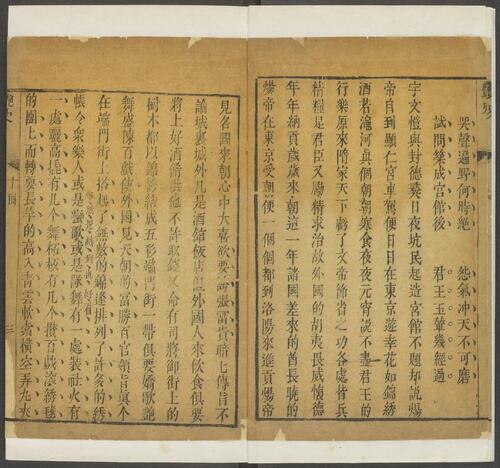 哭聲遍野何時絕　怨氣冲天不可磨
試問築成宮館後　君王玉輦幾經過
宇文愷與封德彝日夜坑民起造宮館不題却說煬
帝自到顯仁宮車駕便日日在東京遊幸花如錦綉
酒若澠河與個朝朝寒食夜夜元宵說不盡君王的
行樂原來隋家天下虧了文帝節省之功各處皆兵
精糧足君臣又勵精求治故外國的胡夷畏威懷德
年年納貢歲歲來朝這一年諸國差來的酋長曉的
煬帝在東京受朝便一個個都到洛陽來進貢煬帝
見各國來朝心中大喜欲要誇張富貴暗七傳旨不
論城裏城外凡是酒館飯店但外國人來飲食俱要
將上好酒餚供他不許取錢又命有司將御街上的
樹木都以錦綉結成五彩端門街一帶俱要嬌歌艷
舞盛陳百戲使外國見天朝的富勝百官領旨真個
在端門街上搭起了無數的錦逢排列了許多的綉
帳令衆樂人或是蠻歌或是隊舞有一處裝社火有
一處躧高撬有几个舞柘枝有几个攧百戲滾綉毬
的團上而轉耍長竿的高入青雲軟索橫空弄丸夾
艷史
十回
三